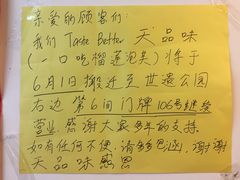 亲爱的顾客们:
我们 Taste Better 天品味
(一口吃榴莲泡芙)将于
6月1日搬迁至世遗公园
右边第6间门牌106号继续
营业.感谢大家多年的支持.
如有任何不便.请多多包涵.谢谢
天品味感恩